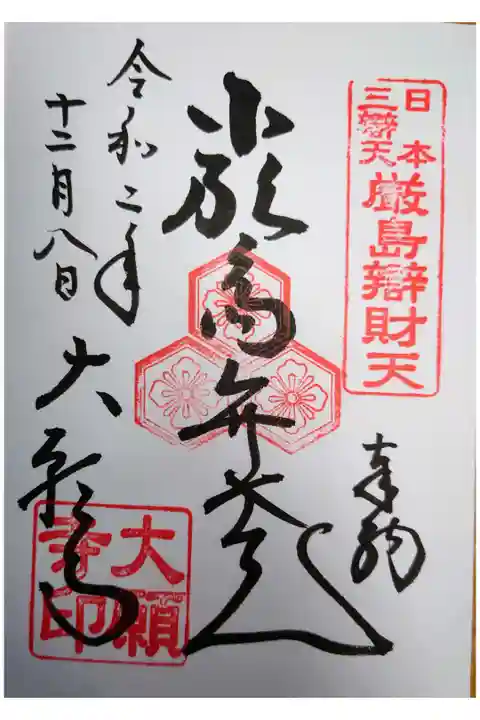 日本
三辯天
厳島辯財天
奉
厳島弁
令和二年
十二月八日 大願寺
大願寺印